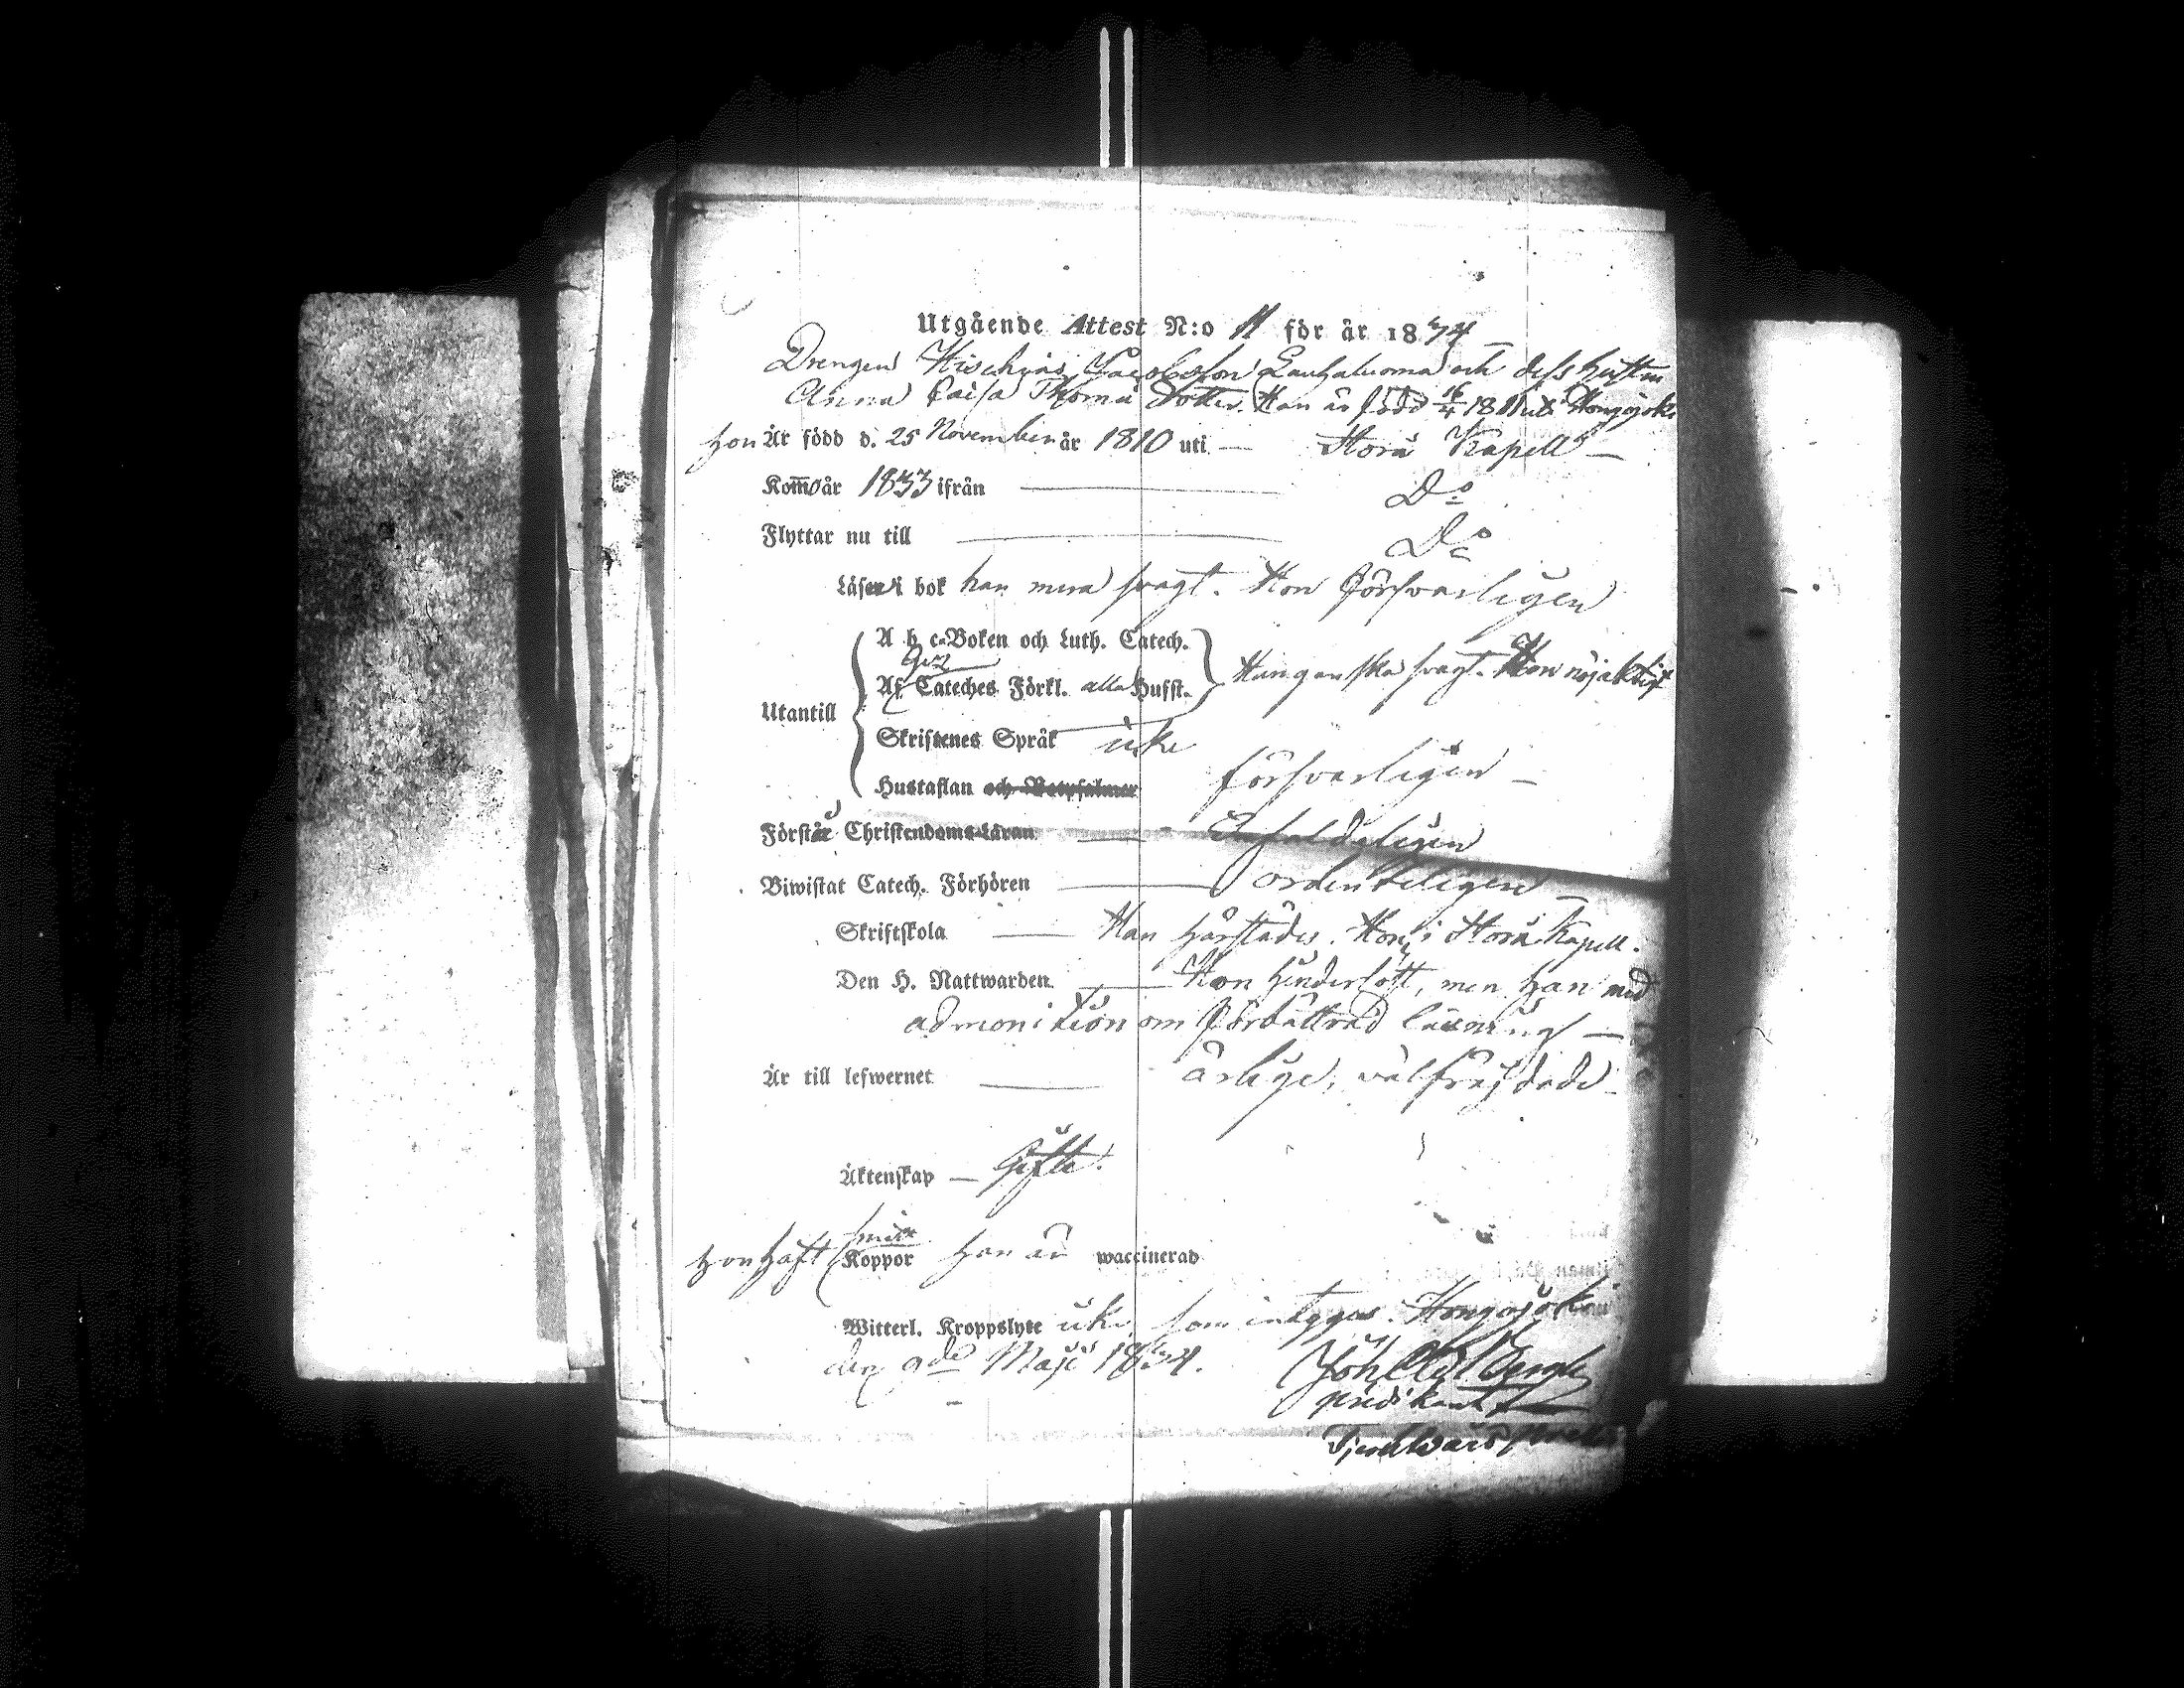 Utgående Attest N:o 11 för år 1834
Drengen Hischias Jacobsson Lauhaluoma och dess hustru
Anna Caisa Thomä Dotter. Han är född 16/4 1811 uti Hongojoki
hon Är född d. 25 Novembr år 1810 uti — Storå Kapell —
Kom̄o år 1833 ifrån — Do
Flyttar nu till — Do
Läsa i bok han mera svagt. Hon försvarligen
A b c-Boken och Luth. Catech.
Af Cateches Förkl. alla Hufst. Han ganska svagt. Hon nöjaktigt
Utantill
Skriftenes Språk icke
Hustaflan och Botpsalmer försvarligen —
Förstå Christendoms-Läran — Enfaldeligen
Biwistat Catech. Förhören — ordenteligen —
Skriftskola — Han härstädes. Hon i Storå Kapell.
Den H. Nattwarden — Hon hinderlöst, men han med
admonition om förbättrad läsning —
Är till lefwernet — ärlige, välfräjdade
Äktenskap — Gifte.
hon haft Koppor han är waccinerad
Witterl. Kroppslyte icke, som intygas. Hongojoki
den 9de Maji 1834. Joh.
predikant